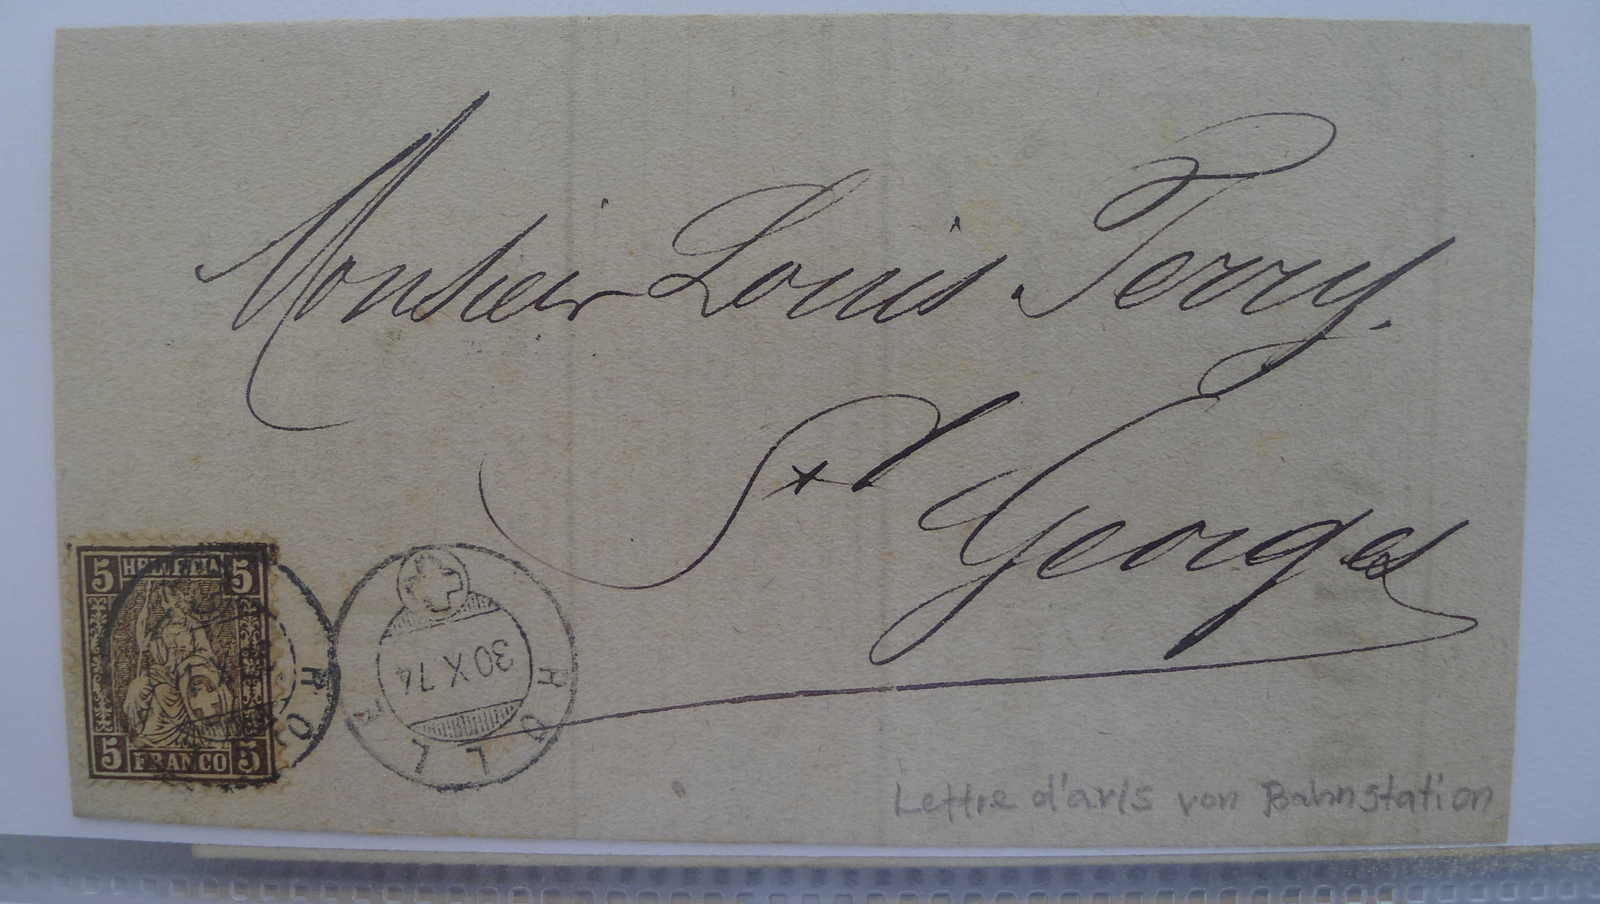 Monsieur Louis Terry.
St Georges
5 HELVETIA 5
5 FRANCO 5
RO
ROLLE
30 X 74
Lettre d'avis von Bahnstation